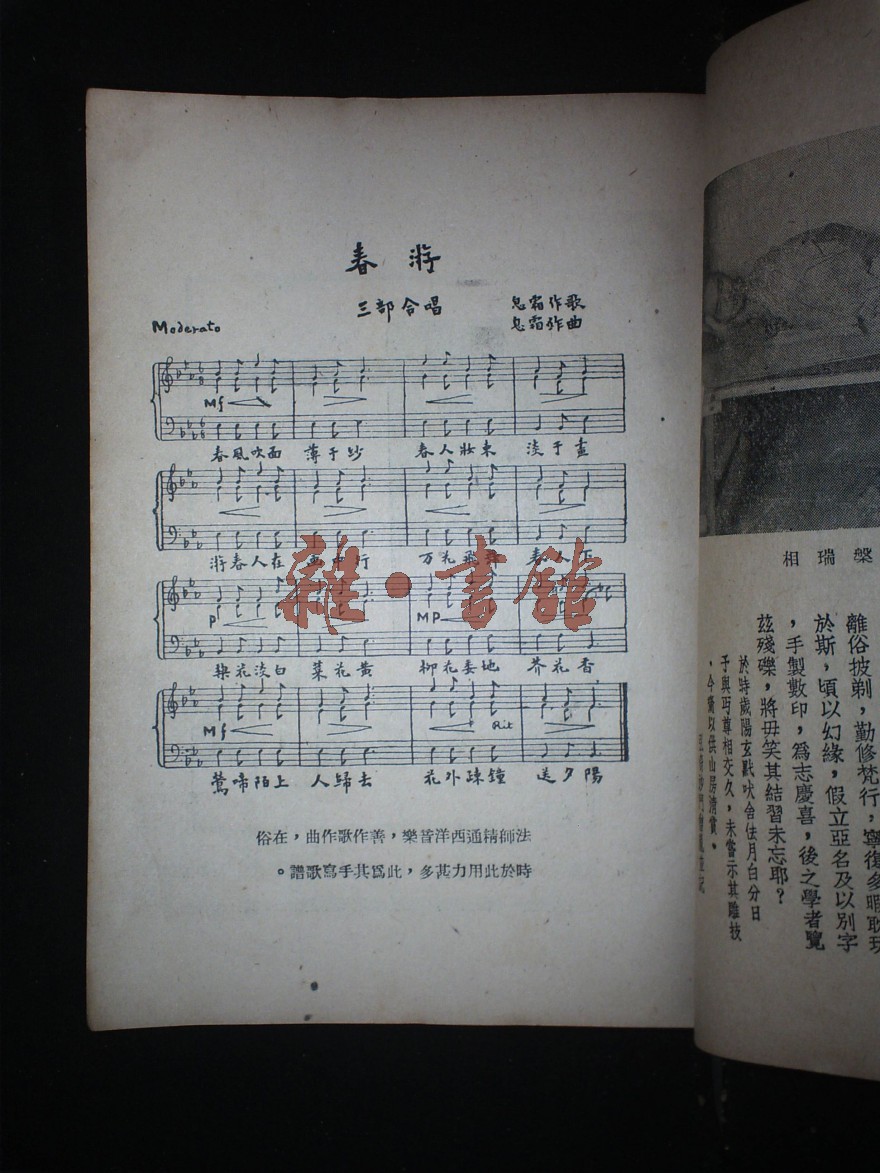 春游
三部合唱
息霜作歌
息霜作曲
Moderato
Mf
春風吹面 薄于紗 春人妝束 淡于畫
游春人在 畫中行 万花飛舞 春人下
P
MP
梨花淡白 菜花黃 柳花委地 芥花香
Mf
Rit
鶯啼陌上 人歸去 花外疎鐘 送夕陽
法師精通西洋音樂，善作歌作曲，在俗
時於此用力甚多，此爲其手寫歌譜。
雜·書館
槃瑞相
離俗披剃，勤修梵行，寧復多暇耽玩
於斯，頃以幻緣，假立亞名及以別字
，手製數印，爲志慶喜，後之學者覽
茲殘礫，將毋笑其結習未忘耶？
於時歲陽玄黓吠舍佉月白分日
予與丏尊相交久，未嘗示其雕技
，今齎以供山房清賞。